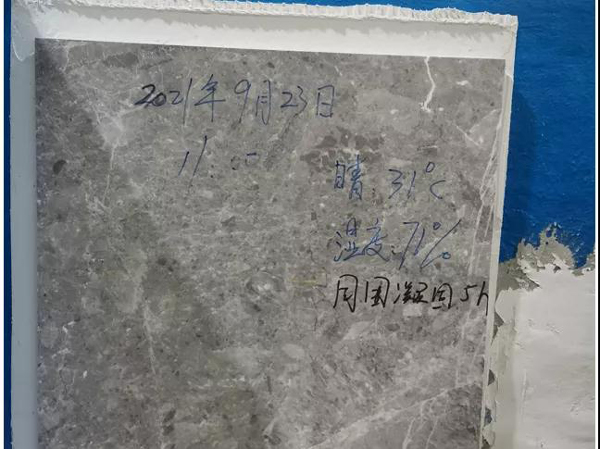 2021年9月23日
11:00
晴:31℃
湿度:71%
周围凝固5h